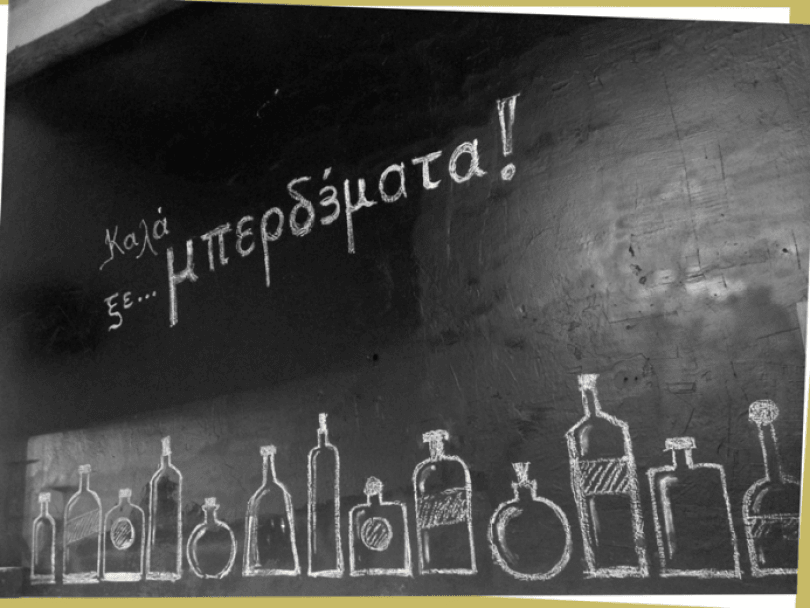 Καλά
ξε... μπερδέματα!